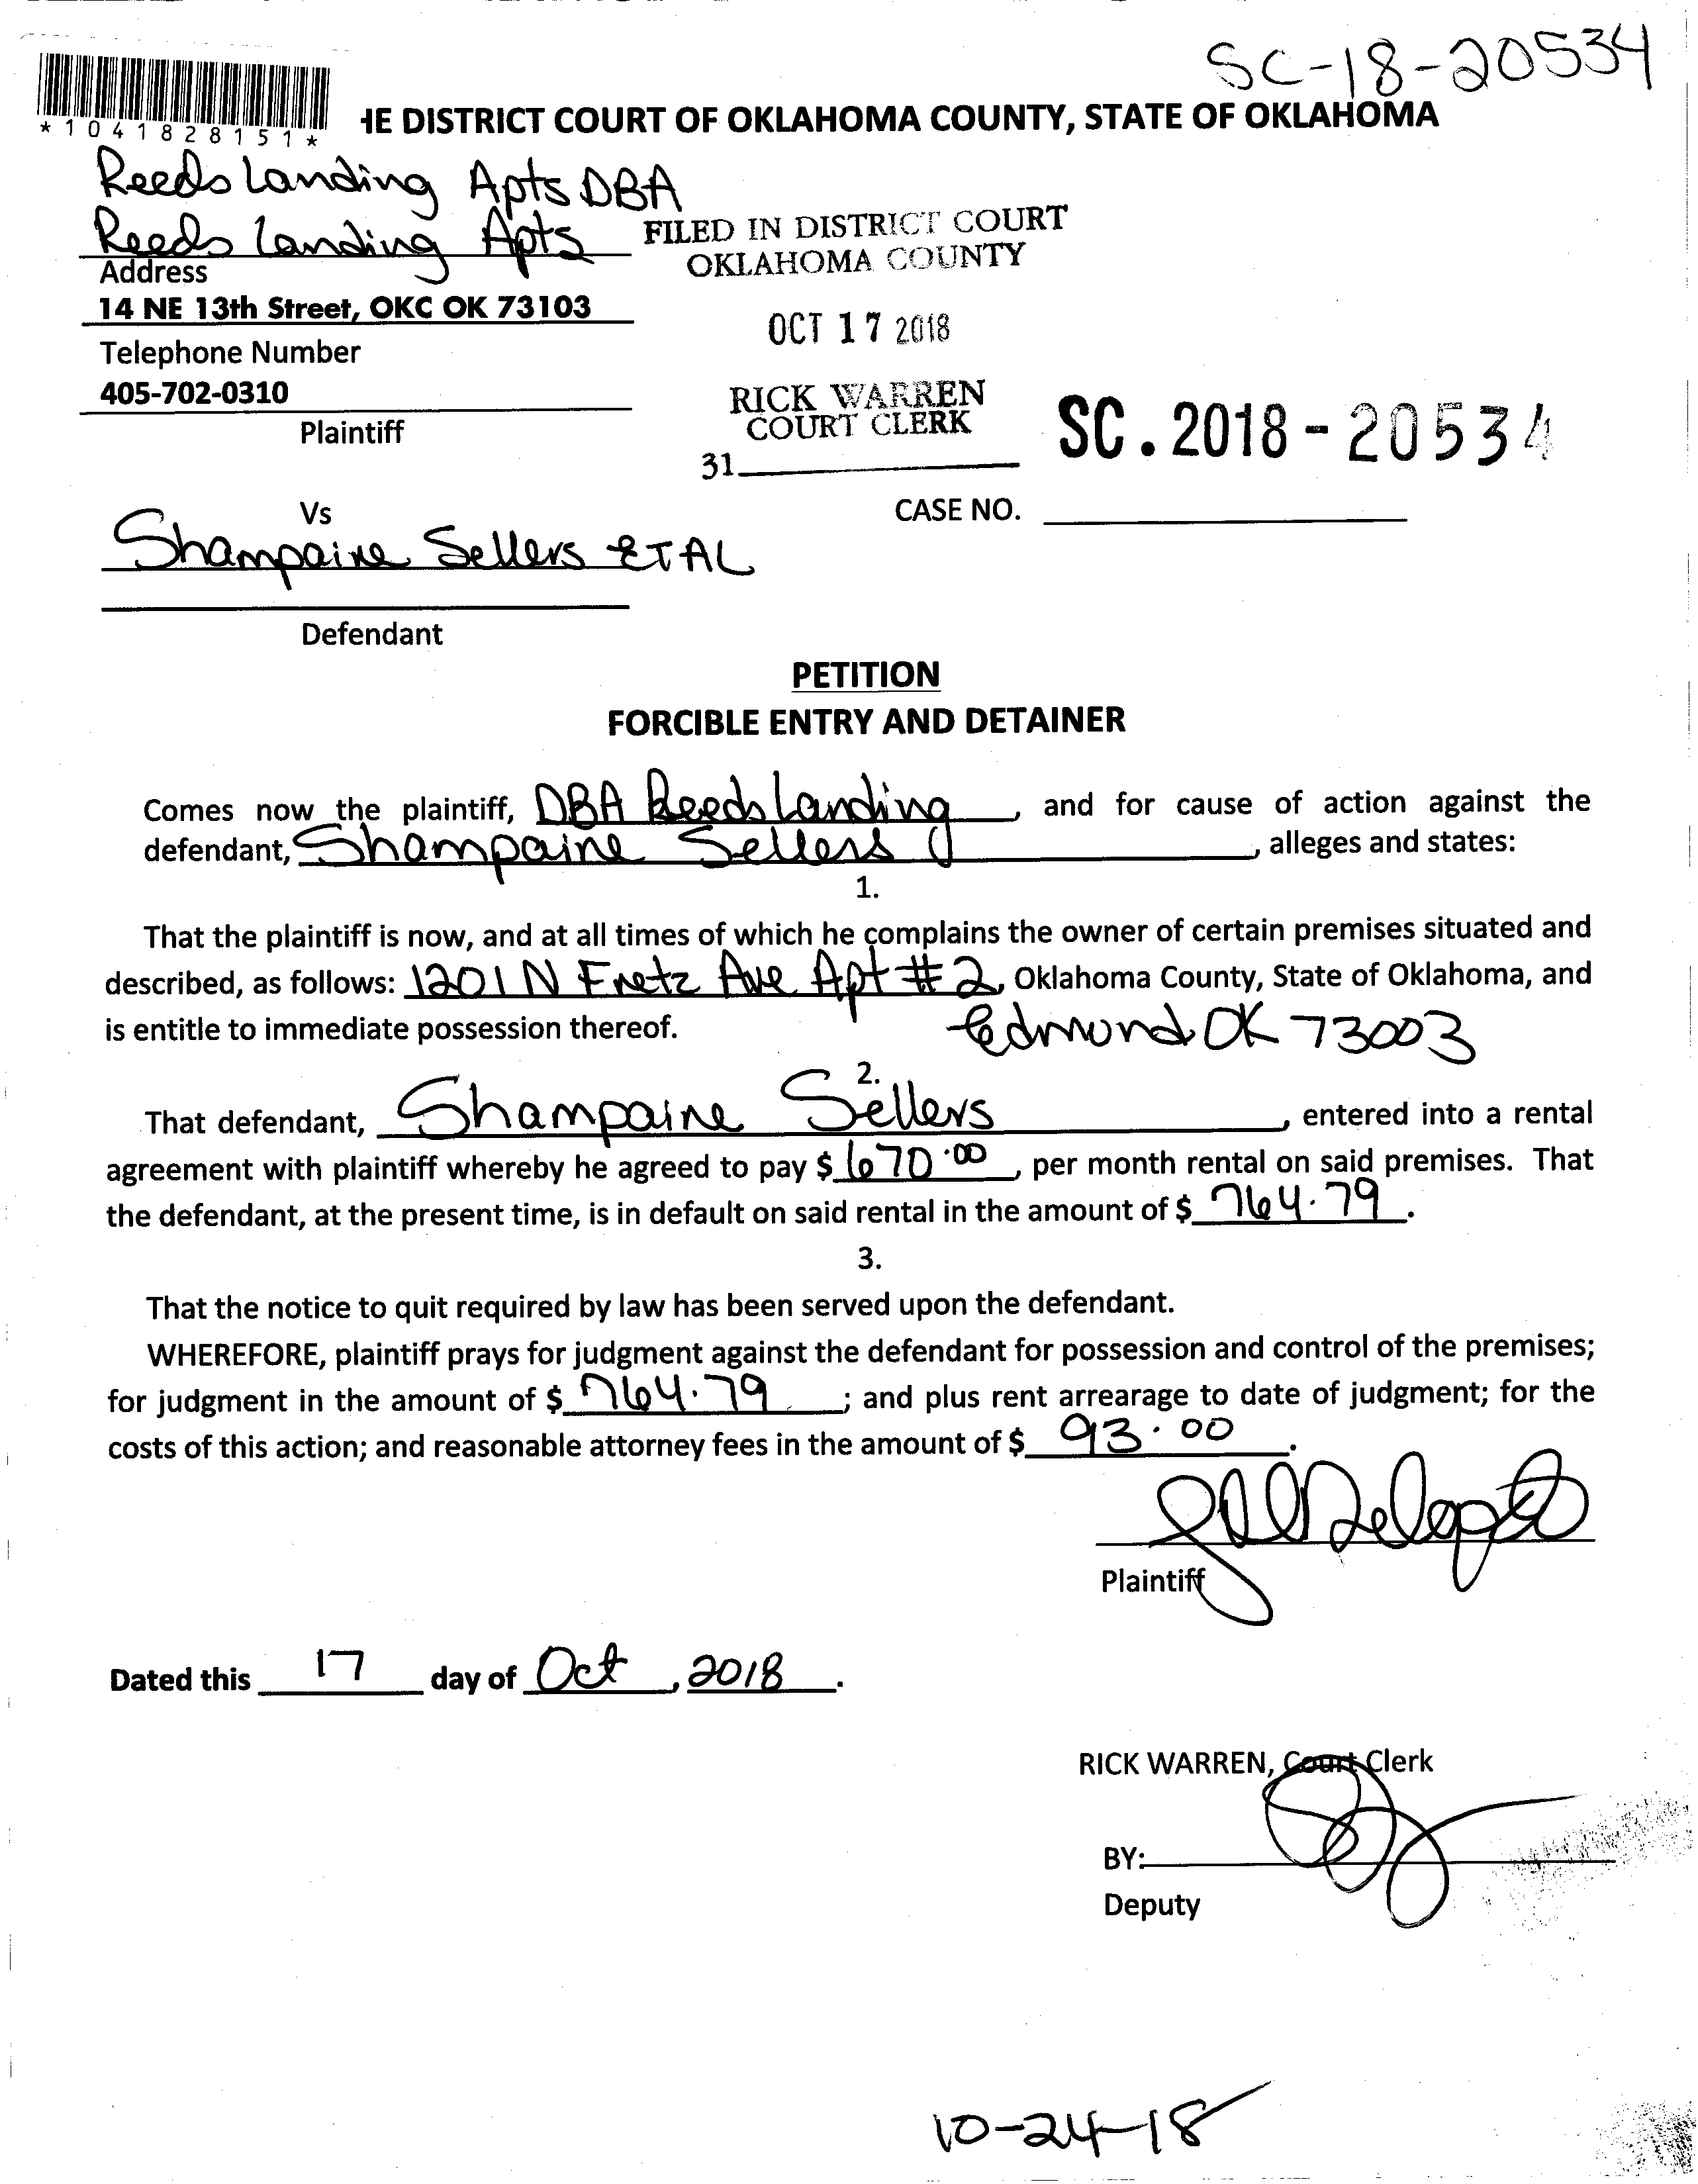 SC-18-20534
*1041828151*
HE DISTRICT COURT OF OKLAHOMA COUNTY, STATE OF OKLAHOMA
Reeds Landing Apts DBA
Reeds Landing Apts
FILED IN DISTRICT COURT
OKLAHOMA COUNTY
Address
14 NE 13th Street, OKC OK 73103
OCT 17 2018
Telephone Number
405-702-0310
RICK WARREN
COURT CLERK
Plaintiff
SC.2018-20534
31
Vs
CASE NO.
Shampaine Sellers ETAL
Defendant
PETITION
FORCIBLE ENTRY AND DETAINER
Comes now the plaintiff, DBA Reeds Landing, and for cause of action against the
defendant, Shampaine Sellers, alleges and states:
1.
That the plaintiff is now, and at all times of which he complains the owner of certain premises situated and
described, as follows: 1201 N Fretz Ave Apt #2, Oklahoma County, State of Oklahoma, and
is entitle to immediate possession thereof. Edmund OK 73003
2.
That defendant, Shampaine Sellers, entered into a rental
agreement with plaintiff whereby he agreed to pay $ 670.00, per month rental on said premises. That
the defendant, at the present time, is in default on said rental in the amount of $ 764.79.
3.
That the notice to quit required by law has been served upon the defendant.
WHEREFORE, plaintiff prays for judgment against the defendant for possession and control of the premises;
for judgment in the amount of $ 764.79; and plus rent arrearage to date of judgment; for the
costs of this action; and reasonable attorney fees in the amount of $ 93.00.
Plaintiff
Dated this 17 day of Oct, 2018.
RICK WARREN, Court Clerk
BY:
Deputy
10-24-18